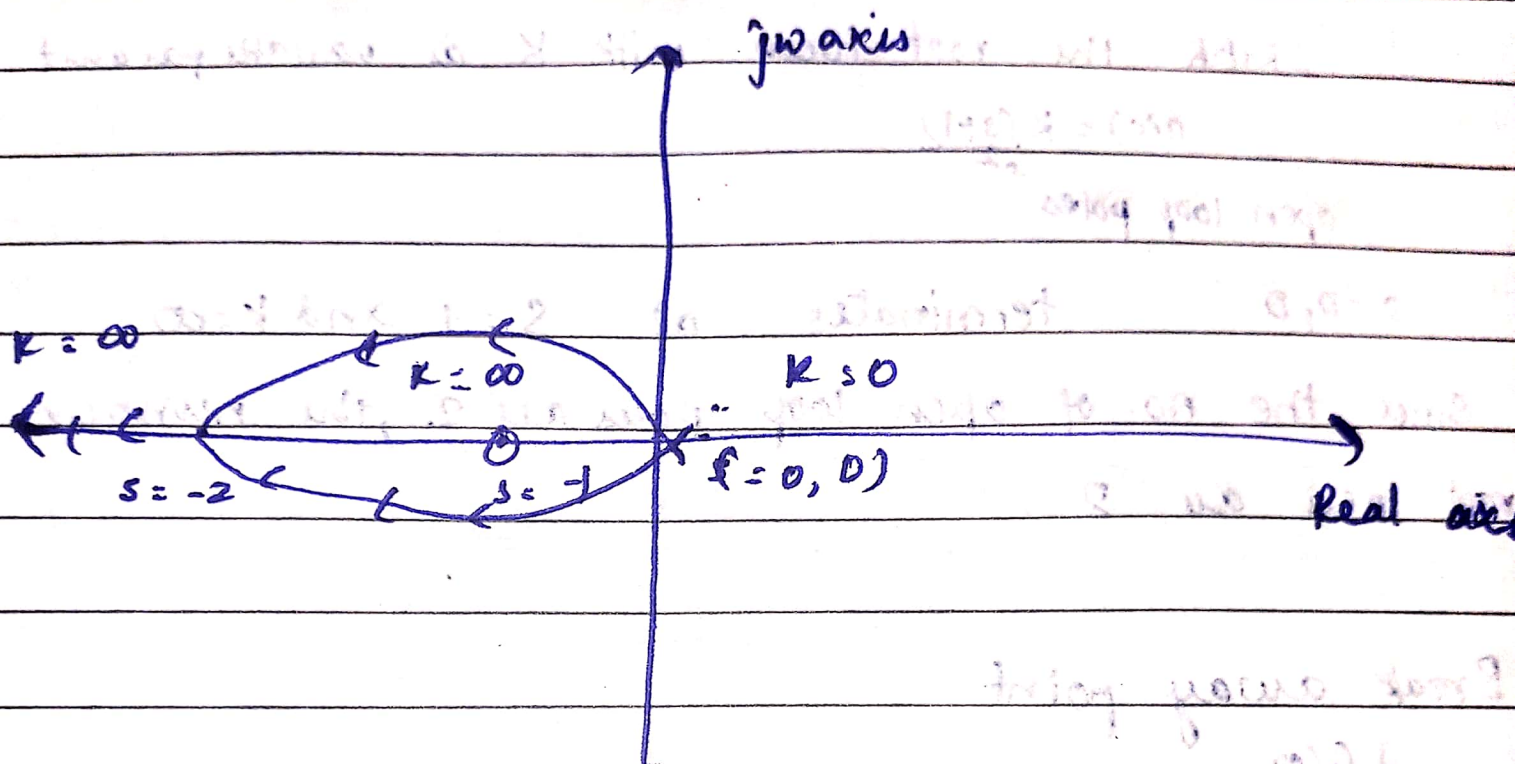 jw axis
K = ∞
K = ∞
K = 0
s = -2
s = -1
s = 0, 0)
Real axis